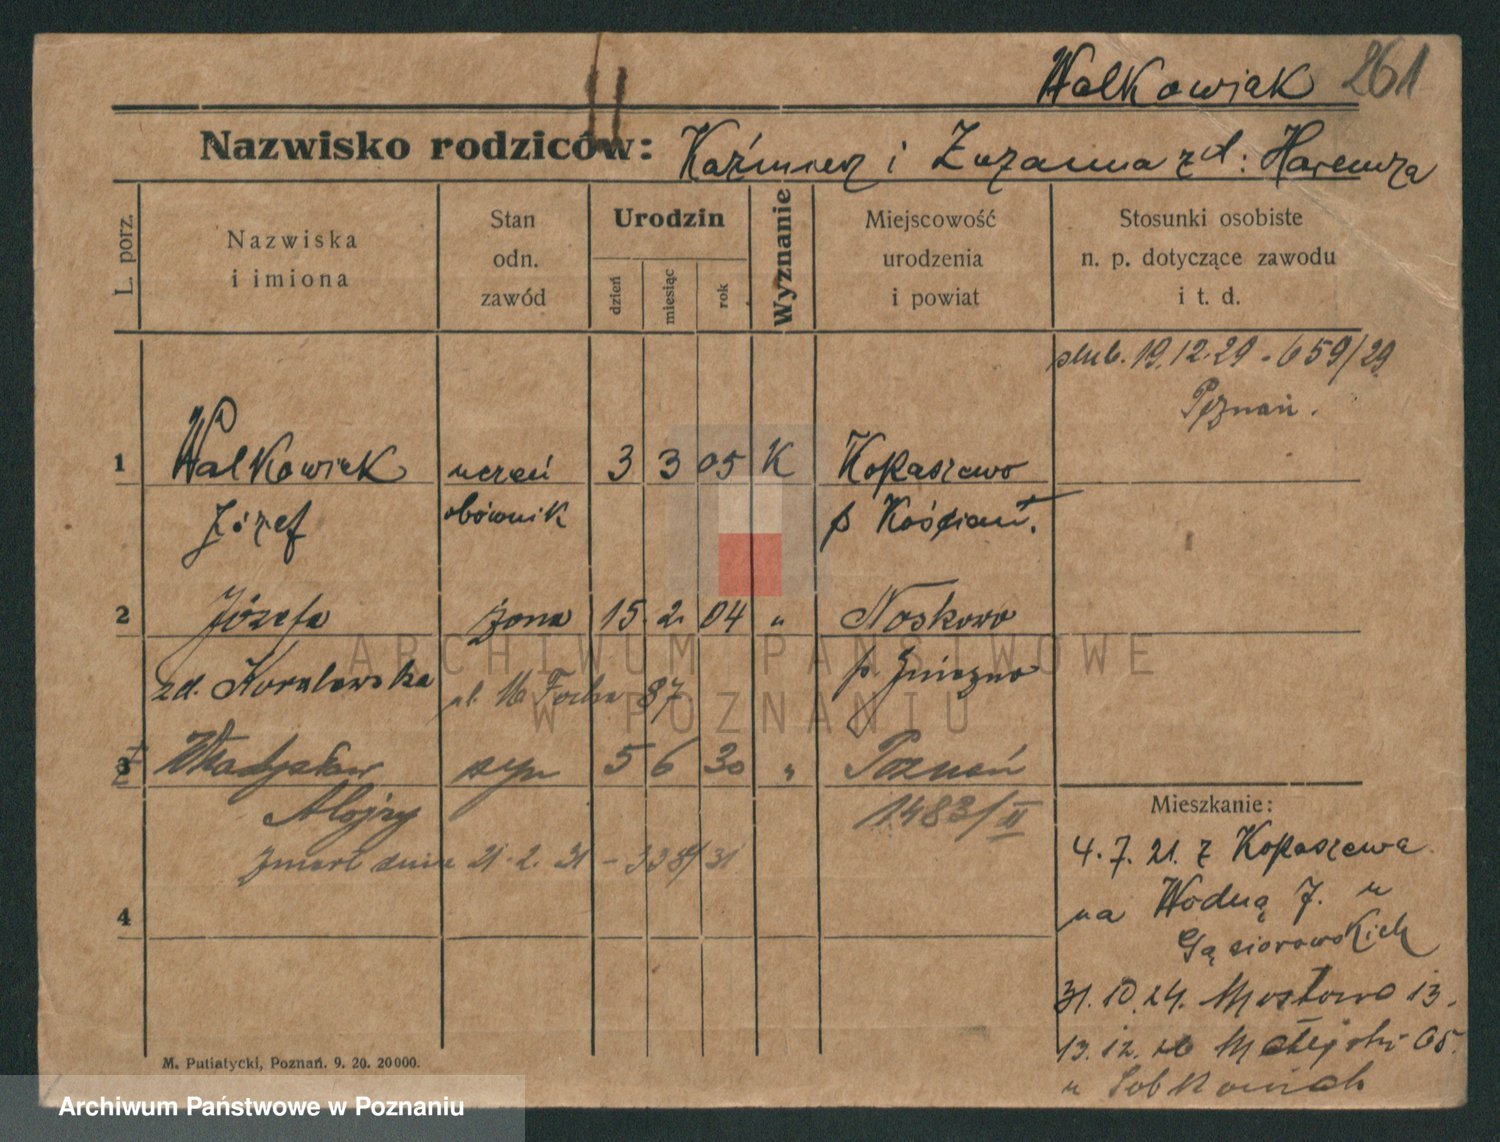 Walkowiak 261
Nazwisko rodziców: Kaźmierz i Zuzanna zd: Haremza
L. porz.
Nazwiska
i imiona
Stan
odn.
zawód
Urodzin
dzień
miesiąc
rok
Wyznanie
Miejscowość
urodzenia
i powiat
Stosunki osobiste
n. p. dotyczące zawodu
i t. d.
ślub. 19.12.29 - 659/29
Poznań.
1 Walkowiak uczeń 3 3 05 K Kopaszewo
Józef obównik p Kościan.
2 Józefa żona 15. 2. 04 " Noskowo
zd. Koralewska ul. M Focha 87 p. Gniezno
3 Władysław syn 5 6 30 " Poznań
Alojzy 1483/II
zmarł dnia 21. 2. 31 - 338/31
4
Mieszkanie:
4. 7. 21. z Kopaszewa
na Wodną 7. u
Gąsiorowskich
31. 10. 24. Mostowa 13.
13. 12. 26 Matejki 65.
u Sobkowiak
M. Putiatycki, Poznań. 9. 20. 20000.
ARCHIWUM PAŃSTWOWE
W POZNANIU
Archiwum Państwowe w Poznaniu